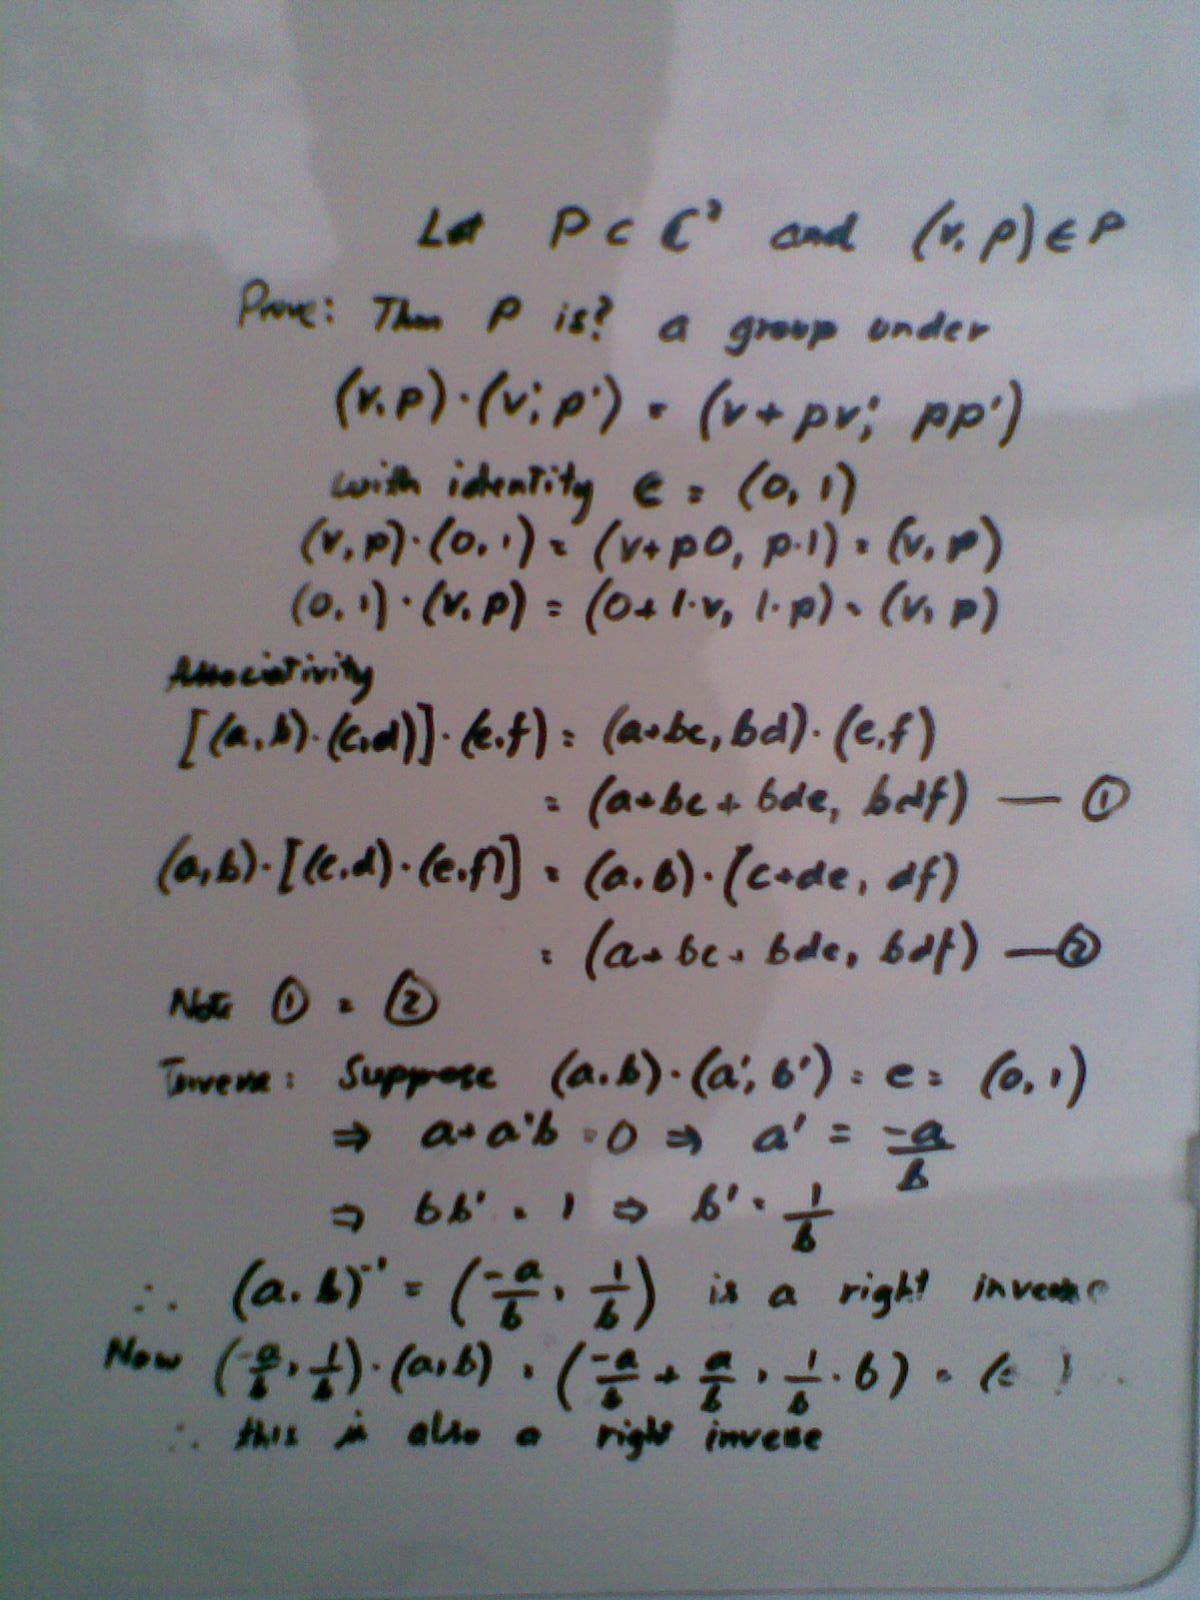 Let P ⊂ ℂ² and (v, p) ∈ P
Prove: Then P is? a group under
(v, p) · (v', p') = (v + pv', pp')
with identity e = (0, 1)
(v, p) · (0, 1) = (v + p0, p·1) = (v, p)
(0, 1) · (v, p) = (0 + 1·v, 1·p) = (v, p)
Associativity
[(a, b) · (c, d)] · (e, f) = (a + bc, bd) · (e, f)
= (a + bc + bde, bdf) — ①
(a, b) · [(c, d) · (e, f)] = (a, b) · (c + de, df)
= (a + bc + bde, bdf) — ②
Note ① = ②
Inverse: Suppose (a, b) · (a', b') = e = (0, 1)
⇒ a + a'b = 0 ⇒ a' = -a/b
⇒ bb' = 1 ⇒ b' = 1/b
∴ (a, b)⁻¹ = (-a/b, 1/b) is a right inverse
Now (-a/b, 1/b) · (a, b) = (-a/b + a/b, 1/b · b) = (
∴ this is also a right inverse